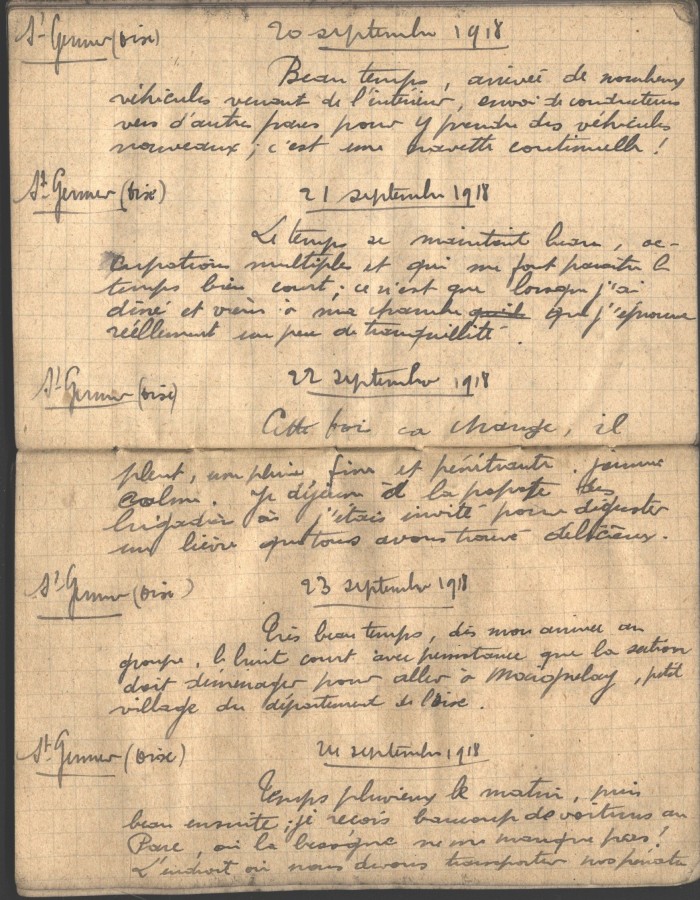 St Germer (Oise) 20 septembre 1918
Beau temps, arrivée de nombreux
véhicules venant de l'intérieur, envoi de conducteurs
vers d'autres parcs pour y prendre des véhicules
nouveaux ; c'est une navette continuelle !
St Germer (Oise) 21 septembre 1918
Le temps se maintient beau, oc-
cupations multiples et qui me font paraître le
temps bien court ; ce n'est que lorsque j'ai
dîné et viens à ma chambre que j'éprouve
réellement un peu de tranquillité.
St Germer (Oise) 22 septembre 1918
Cette fois ca change, il
pleut, une pluie fine et pénétrante. journée
calme. Je déjeune à la popote des
brigadiers où j'étais invité pour déguster
un lièvre que tous avons trouvé délicieux.
St Germer (Oise) 23 septembre 1918
Très beau temps, dès mon arrivée au
groupe, le bruit court avec persistance que la section
doit déménager pour aller à Maignelay, petit
village du département de l'Oise.
St Germer (Oise) 24 septembre 1918
Temps pluvieux le matin, puis
beau ensuite ; je reçois beaucoup de voitures au
Parc, où la besogne ne me manque pas !
L'endroit où nous devons transporter nos pénates